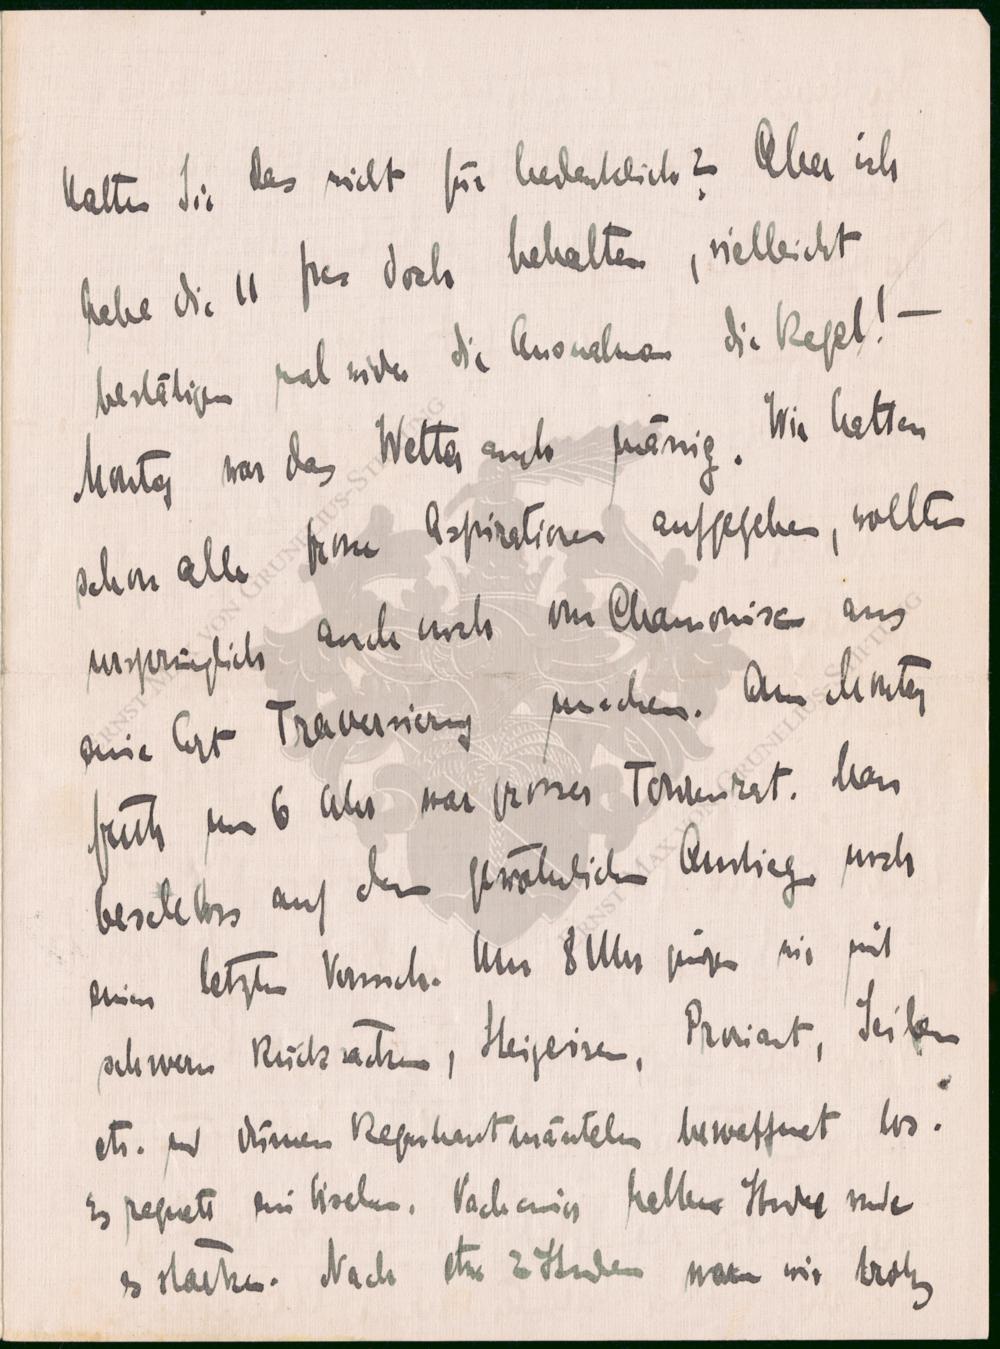 Halten Sie das nicht für bedenklich? Aber ich
habe die 11 frcs doch behalten, vielleicht
bestätigen mal wieder die Ausnahmen die Regel! —
Montag war das Wetter auch mässig. Wir hatten
schon alle Aspirationen aufgegeben, wollten
ursprünglich auch noch von Chamonix aus
eine Traversierung machen. Am Montag
früh um 6 Uhr war grosser Totenrat. Man
beschloss auf dem gewöhnlichen Anstieg noch
einen letzten Versuch. Um 8 Uhr gingen wir mit
schweren Rucksäcken, Steigeisen, Proviant, Seilen
etc. und dünnen Regenhautmänteln bewaffnet los.
Es regnete ein bischen. Nach einer halben Stunde
es stärker. Nach etwa 2 Stunden waren wir trotz
ERNST MAX VON GRUNELIUS-STIFTUNG
ERNST MAX VON GRUNELIUS-STIFTUNG